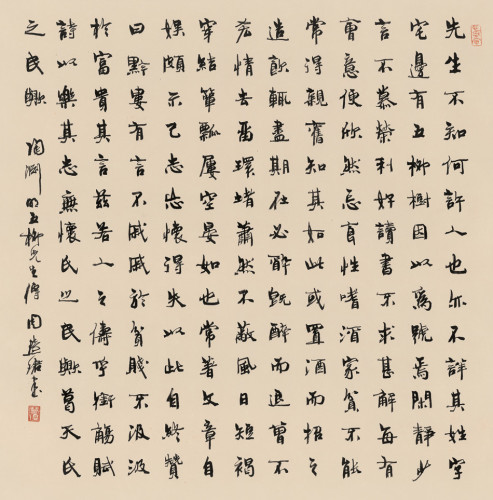 先生不知何許人也亦不詳其姓字
宅邊有五柳樹因以為號焉閑靜少
言不慕榮利好讀書不求甚解每有
會意便欣然忘食性嗜酒家貧不能
常得親舊知其如此或置酒而招之
造飲輒盡期在必醉既醉而退曾不
吝情去留環堵蕭然不蔽風日短褐
穿結簞瓢屢空晏如也常著文章自
娛頗示己志忘懷得失以此自終贊
曰黔婁有言不戚戚於貧賤不汲汲
於富貴其言茲若人之儔乎銜觴賦
詩以樂其志無懷氏之民歟葛天氏
之民歟 陶淵明五柳先生傳 周